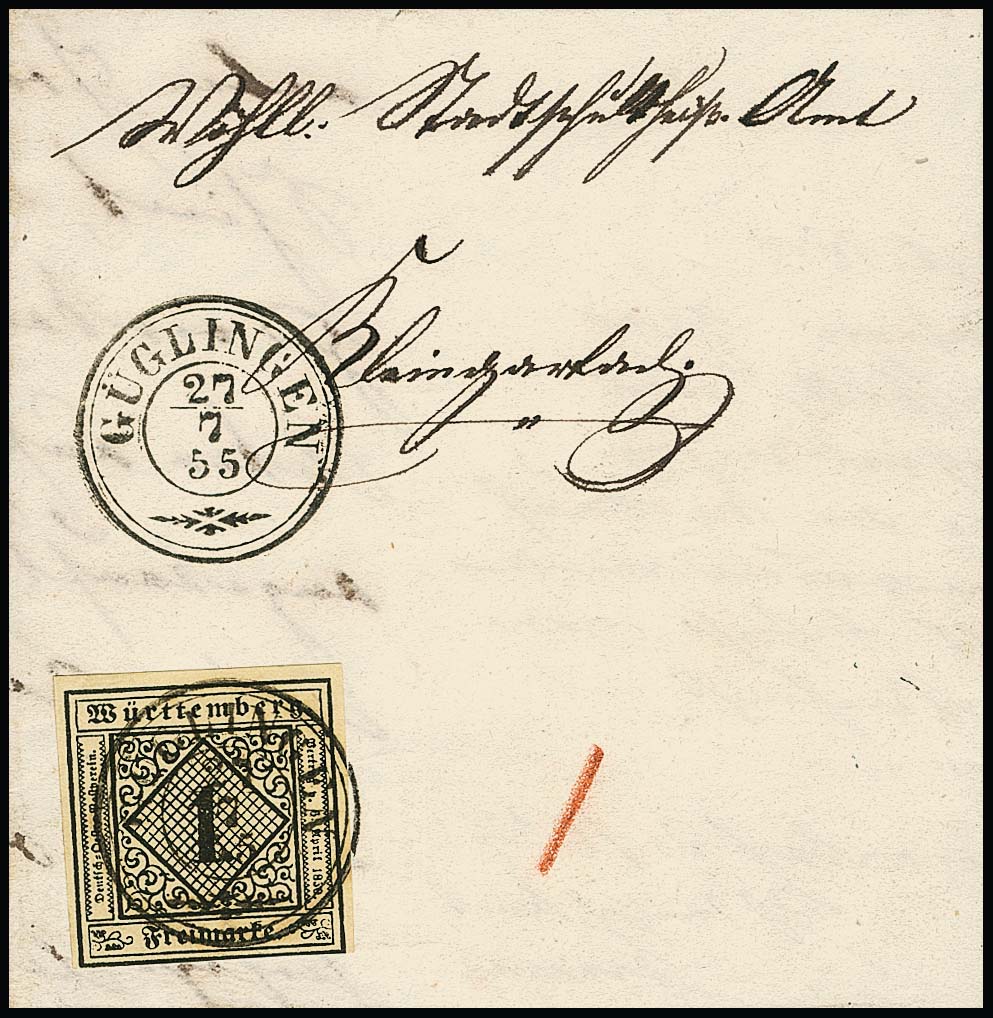 Wohll. Stadtschultheiß. Amt
Kleingartach.
GÜGLINGEN
27
7
55
Württemberg
Deutsch-Oestr. Postverein.
1
Vertrag v. 6. April 1850
Freimarke